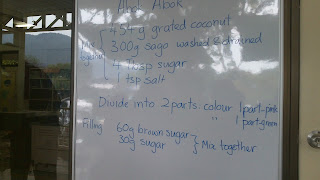 Abok Abok
454g grated coconut
300g sago washed & drained
Mix together
4 tbsp sugar
1 tsp salt
Divide into 2 parts: colour 1 part-pink
" 1 part-green
Filling 60g brown sugar
30g sugar
Mix together